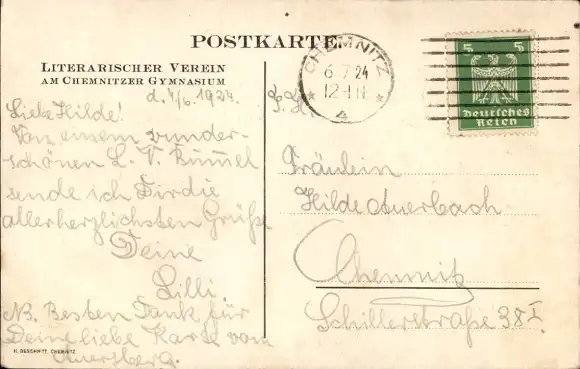 POSTKARTE
LITERARISCHER VEREIN
AM CHEMNITZER GYMNASIUM
d. 4/6. 1924.
Liebe Hilde!
Von einem wunder-
schönen L. V. Bummel
sende ich Dir die
allerherzlichsten Grüße
Deine
Lilli.
NB. Besten Dank für
Deine liebe Karte vom
Auersberg.
H. BESCHNITT, CHEMNITZ
CHEMNITZ
6 7 24
* 12-1 N *
4
5 5
Deutsches
Reich
Fräulein
Hilde Auerbach
Chemnitz
Schillerstraße 38 I.